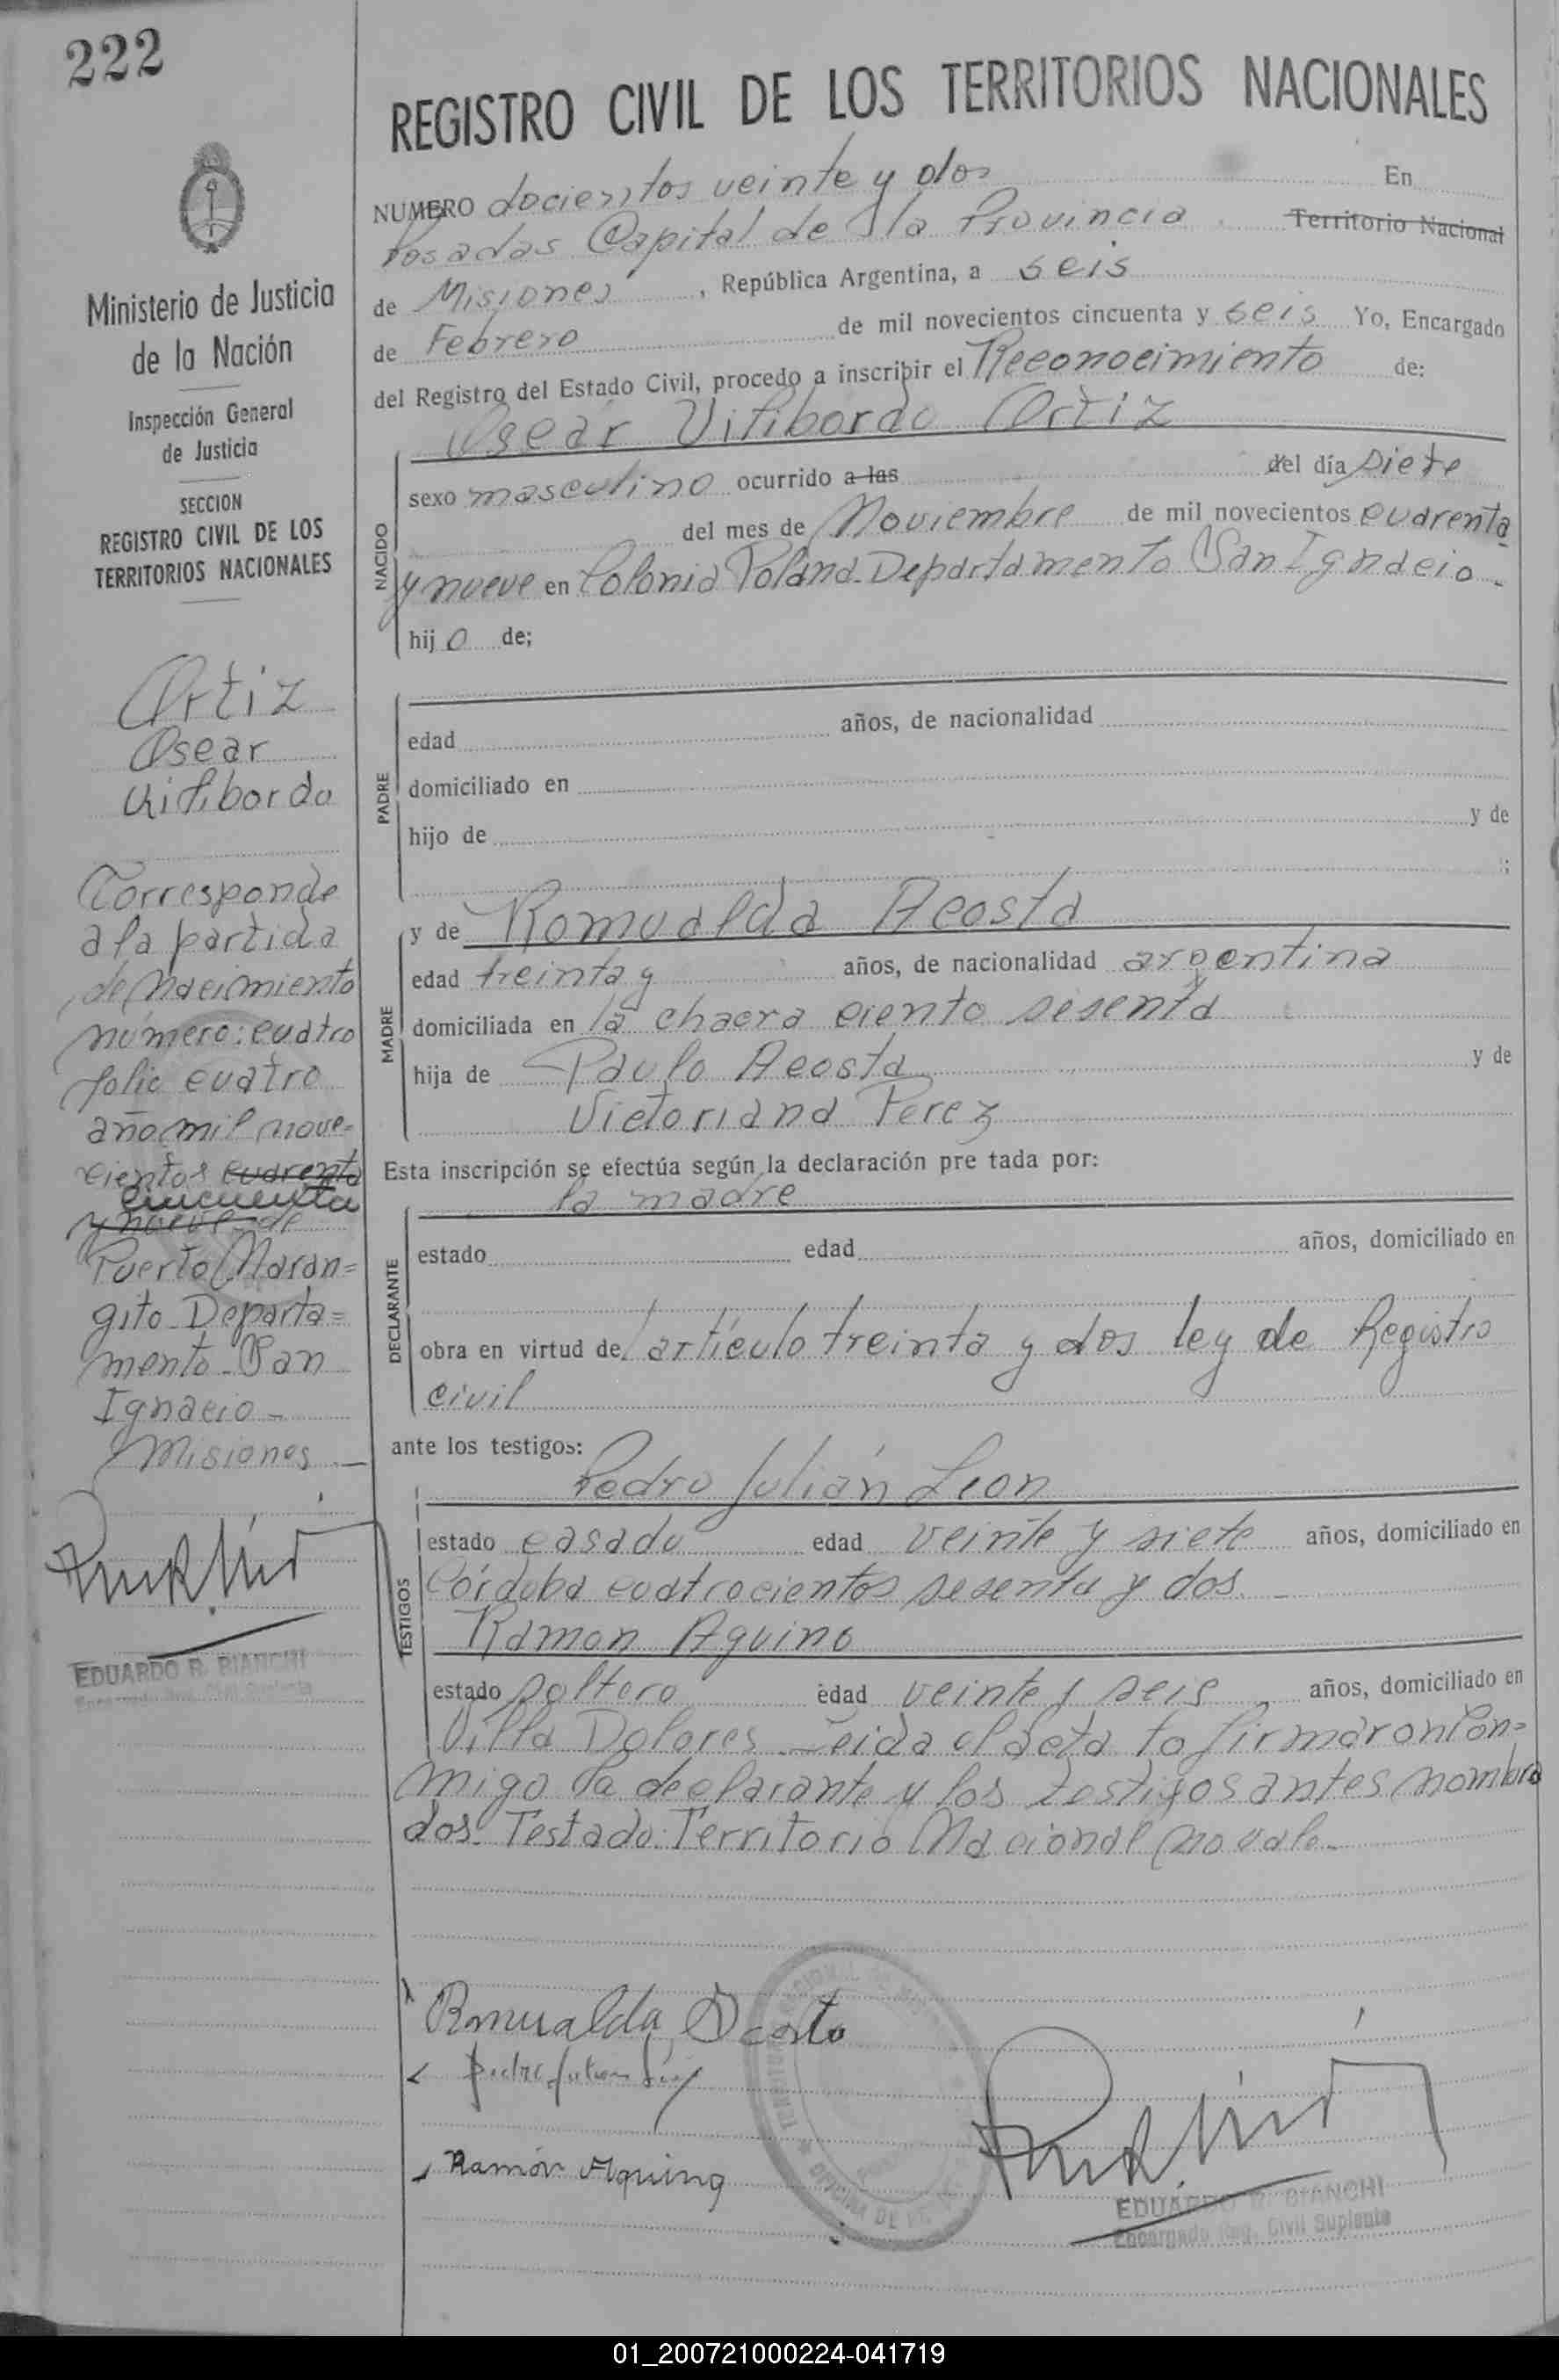 222
Ministerio de Justicia
de la Nación
Inspección General
de Justicia
SECCION
REGISTRO CIVIL DE LOS
TERRITORIOS NACIONALES
Ortiz
Oscar
Vilibordo
Corresponde
a la partida
de Nacimiento
número: cuatro
folio cuatro
año mil nove=
cientos cuarenta
cincuenta
y nueve de
Puerto Naran=
gito Departa=
mento San
Ignacio
Misiones
EDUARDO R. BIANCHI
Encargado Reg. Civil Suplente
REGISTRO CIVIL DE LOS TERRITORIOS NACIONALES
NUMERO docientos veinte y dos En
Posadas Capital de la Provincia Territorio Nacional
de Misiones, República Argentina, a seis
de Febrero de mil novecientos cincuenta y seis Yo, Encargado
del Registro del Estado Civil, procedo a inscribir el Reconocimiento de:
Oscar Vilibordo Ortiz
NACIDO
sexo masculino ocurrido a las del día siete
del mes de Noviembre de mil novecientos cuarenta
y nueve en Colonia Poland Departamento San Ignacio
hijo de;
PADRE
edad años, de nacionalidad
domiciliado en
hijo de y de
;
MADRE
y de Romualda Acosta
edad treinta y años, de nacionalidad argentina
domiciliada en la chacra ciento sesenta
hija de Paulo Acosta y de
Victoriana Perez
Esta inscripción se efectúa según la declaración pre tada por:
la madre
DECLARANTE
estado edad años, domiciliado en
obra en virtud del artículo treinta y dos ley de Registro
civil
ante los testigos:
Pedro Julián Leon
TESTIGOS
estado casado edad veinte y siete años, domiciliado en
Córdoba cuatrocientos sesenta y dos
Ramon Aquino
estado soltero edad veinte y seis, años, domiciliado en
Villa Dolores Leida el acta la firmaron con=
migo la declarante y los testigos antes nombra
dos. Testado: Territorio Nacional no vale
Romualda Acosta
Ramón Aquino
OFICINA DE
EDUARDO R. BIANCHI
Encargado Reg. Civil Suplente
01_200721000224-041719